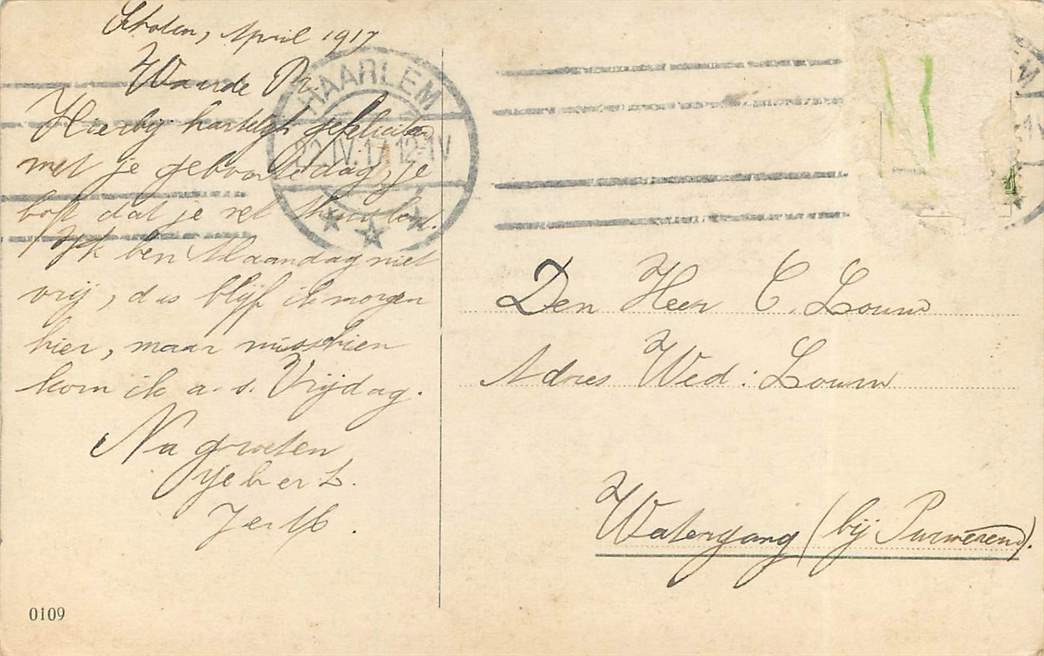 Schoten, April 1917
Waarde
Hierbij hartelijk gefelicit.
met je geboortedag, je
dat je
Ik ben Maandag niet
vrij, dus blijf ik morgen
hier, maar misschien
kom ik a.s. Vrijdag.
Na groeten
HAARLEM
22.IV.17 12-1V
Den Heer C. Louw
Adres Wed: Louw
Watergang (bij Purmerend).
0109